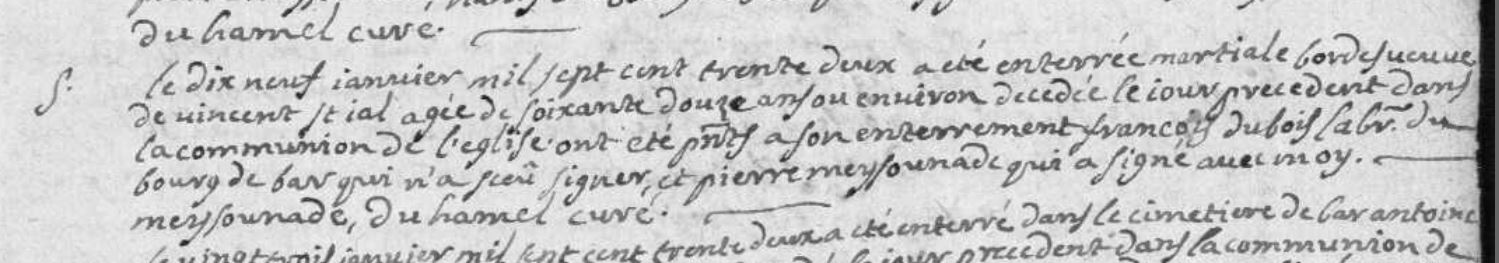 du hamel curé.
S. le dix neuf ianuier mil sept cent trente deux a eté enterrée martiale bordes ueuue
de uincent st ial agée de soixante douze ans ou enuiron decedée le iour precedent dans
la communion de l'eglise. ont eté pnts a son enterrement francois dubois labr. du
bourg de bar qui n'a sceû signer, et pierre meysounade qui a signé auec moy.
meysounade, du hamel curé.
le uingt trois ianuier mil sept cent trente deux a eté enterré dans le cimetiere de bar antoine
le iour precedent dans la communion de